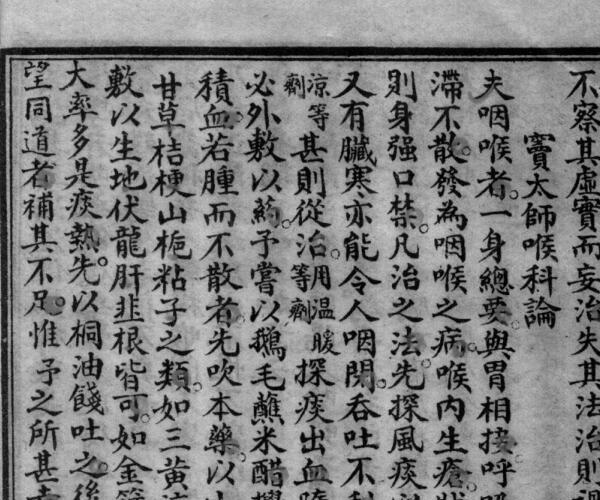 不察其虛實而妄治失其法治則
竇太師喉科論
夫咽喉者一身總要與胃相接呼
滯不散發為咽喉之病喉內生瘡
則身强口禁凡治之法先探風痰
又有臟寒亦能令人咽閉吞吐不利
涼等劑甚則從治用温暖等劑探痰出血
必外敷以藥予嘗以鵝毛蘸米醋
積血若腫而不散者先吹本藥以
甘草桔梗山栀粘子之類如三黃
敷以生地伏龍肝韭根皆可如金
大率多是痰熱先以桐油餞吐之後
望同道者補其不足惟予之所甚